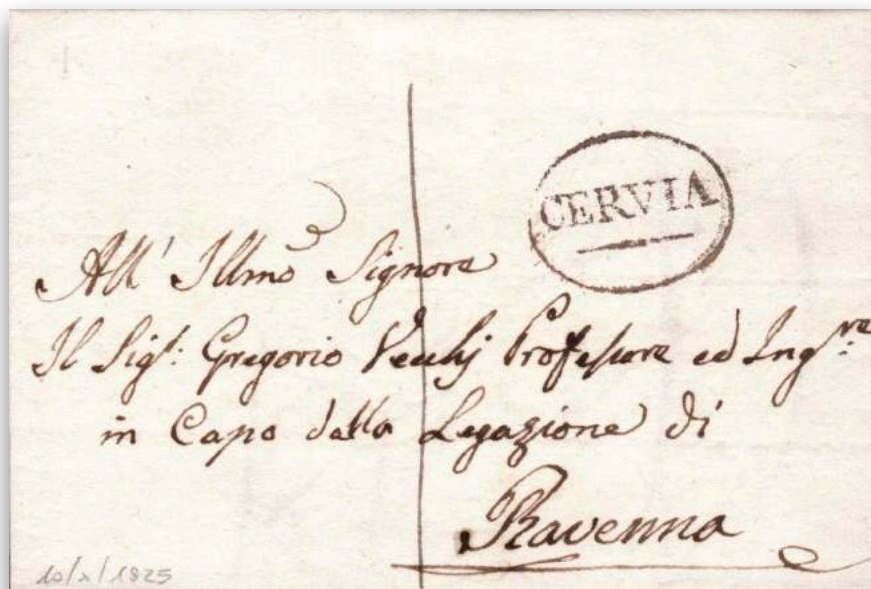 CERVIA
All' Illmo Signore
Il Sigr: Gregorio Vecchj Professore ed Ingre:
in Capo della Legazione di
Ravenna
10/x/1825